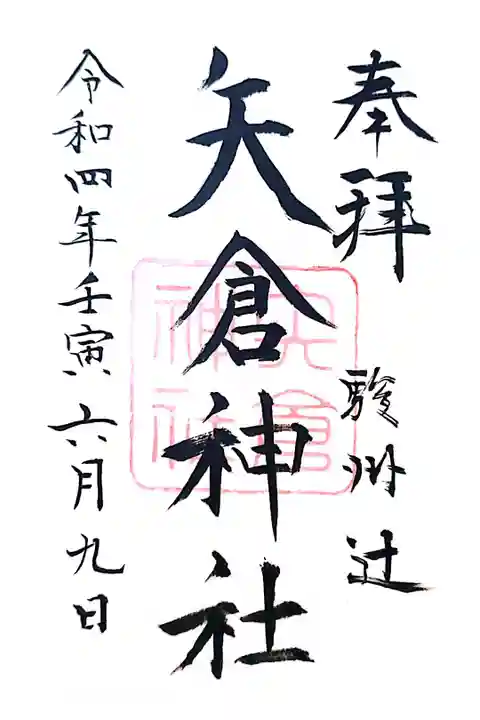 奉拝
駿州辻
矢倉神社
矢倉
神社
令和四年壬寅六月九日